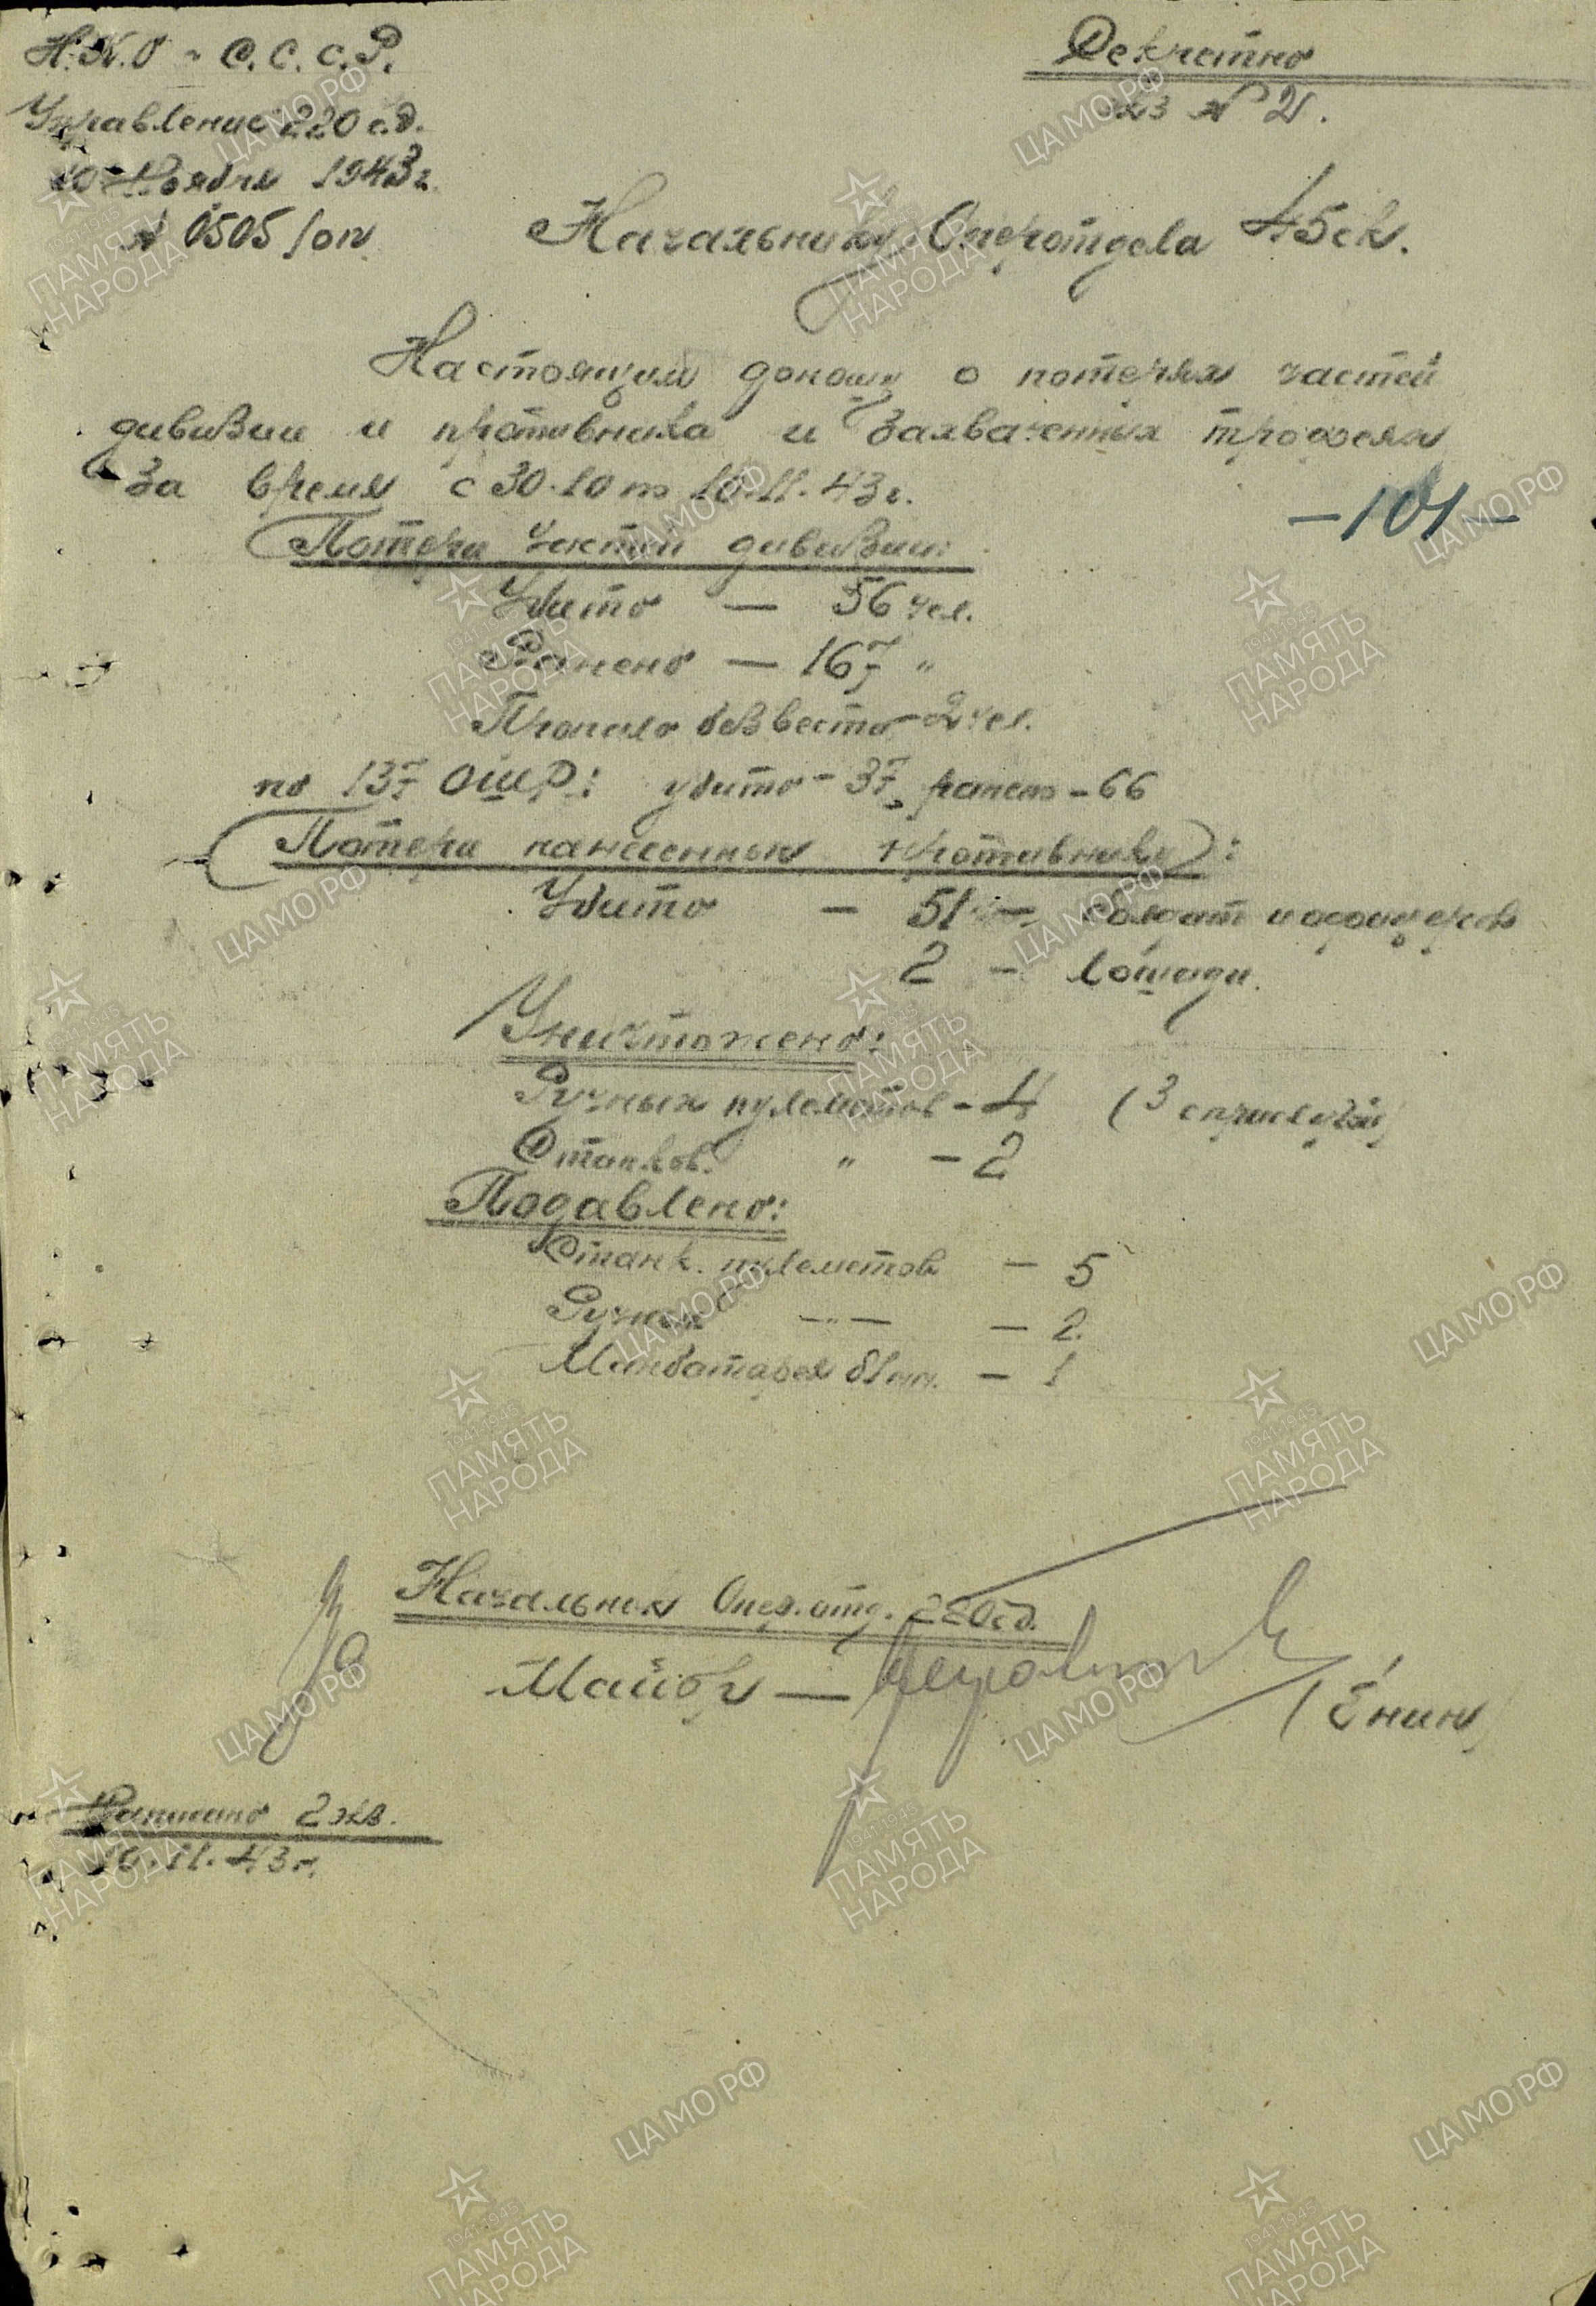 Н.К.О - С.С.С.Р.
Управление 220 с.д.
10 Ноября 1943 г.
№ 0505/оп
Секретно
экз № 2.
Начальнику Оперотдела 45 ск.
Настоящим доношу о потерях частей
дивизии и противника и захваченных трофеях
за время с 30.10 по 10.11.43 г.
-101-
Потери частей дивизии:
Убито — 56 чел.
Ранено — 167 "
Пропало без вести - 2 чел.
по 137 ОШР: убито - 37, ранено - 66
Потери нанесенные противнику:
Убито - 51 — солдат и офицеров
2 - лошади.
Уничтожено:
Ручных пулеметов - 4 (3 с прислугой)
Станков. " - 2
Подавлено:
Станк. пулеметов - 5
Ручных —"— - 2.
Минбатарея 81 мм. - 1
Начальник Опер. отд. 220 сд.
Майор —
(Енин)
2 экз.
10.11.43 г.
ЦАМО РФ
1941-1945
ПАМЯТЬ
НАРОДА